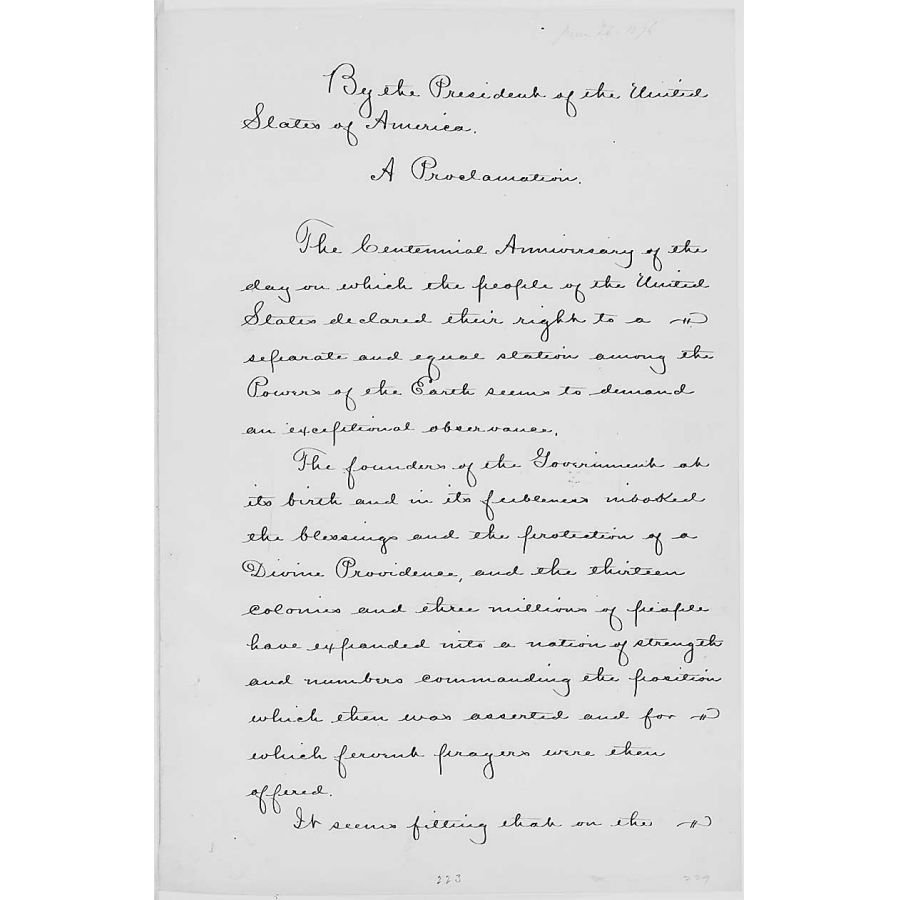 By the President of the United
States of America.
A Proclamation.
The Centennial Anniversary of the
day on which the people of the United
States declared their right to a
separate and equal station among the
Powers of the Earth seems to demand
an exceptional observance.
The founders of the Government at
its birth and in its feebleness invoked
the blessings and the protection of a
Divine Providence, and the thirteen
colonies and three millions of people
have expanded into a nation of strength
and numbers commanding the position
which then was asserted and for
which fervent prayers were then
offered.
It seems fitting that on the
223